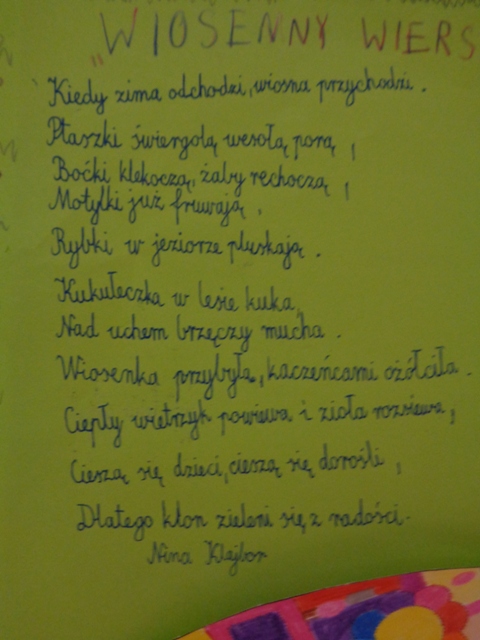 „WIOSENNY WIERS
Kiedy zima odchodzi, wiosna przychodzi.
Ptaszki świergolą wesołą porą,
Boćki klekoczą, żaby rechoczą,
Motylki już fruwają,
Rybki w jeziorze pluskają.
Kukułeczka w lesie kuka,
Nad uchem brzęczy mucha.
Wiosenka przybyła, kaczeńcami ożółciła.
Ciepły wietrzyk powiewa i zioła rozsiewa,
Cieszą się dzieci, cieszą się dorośli,
Dlatego klon zieleni się z radości.
Nina Klajbor